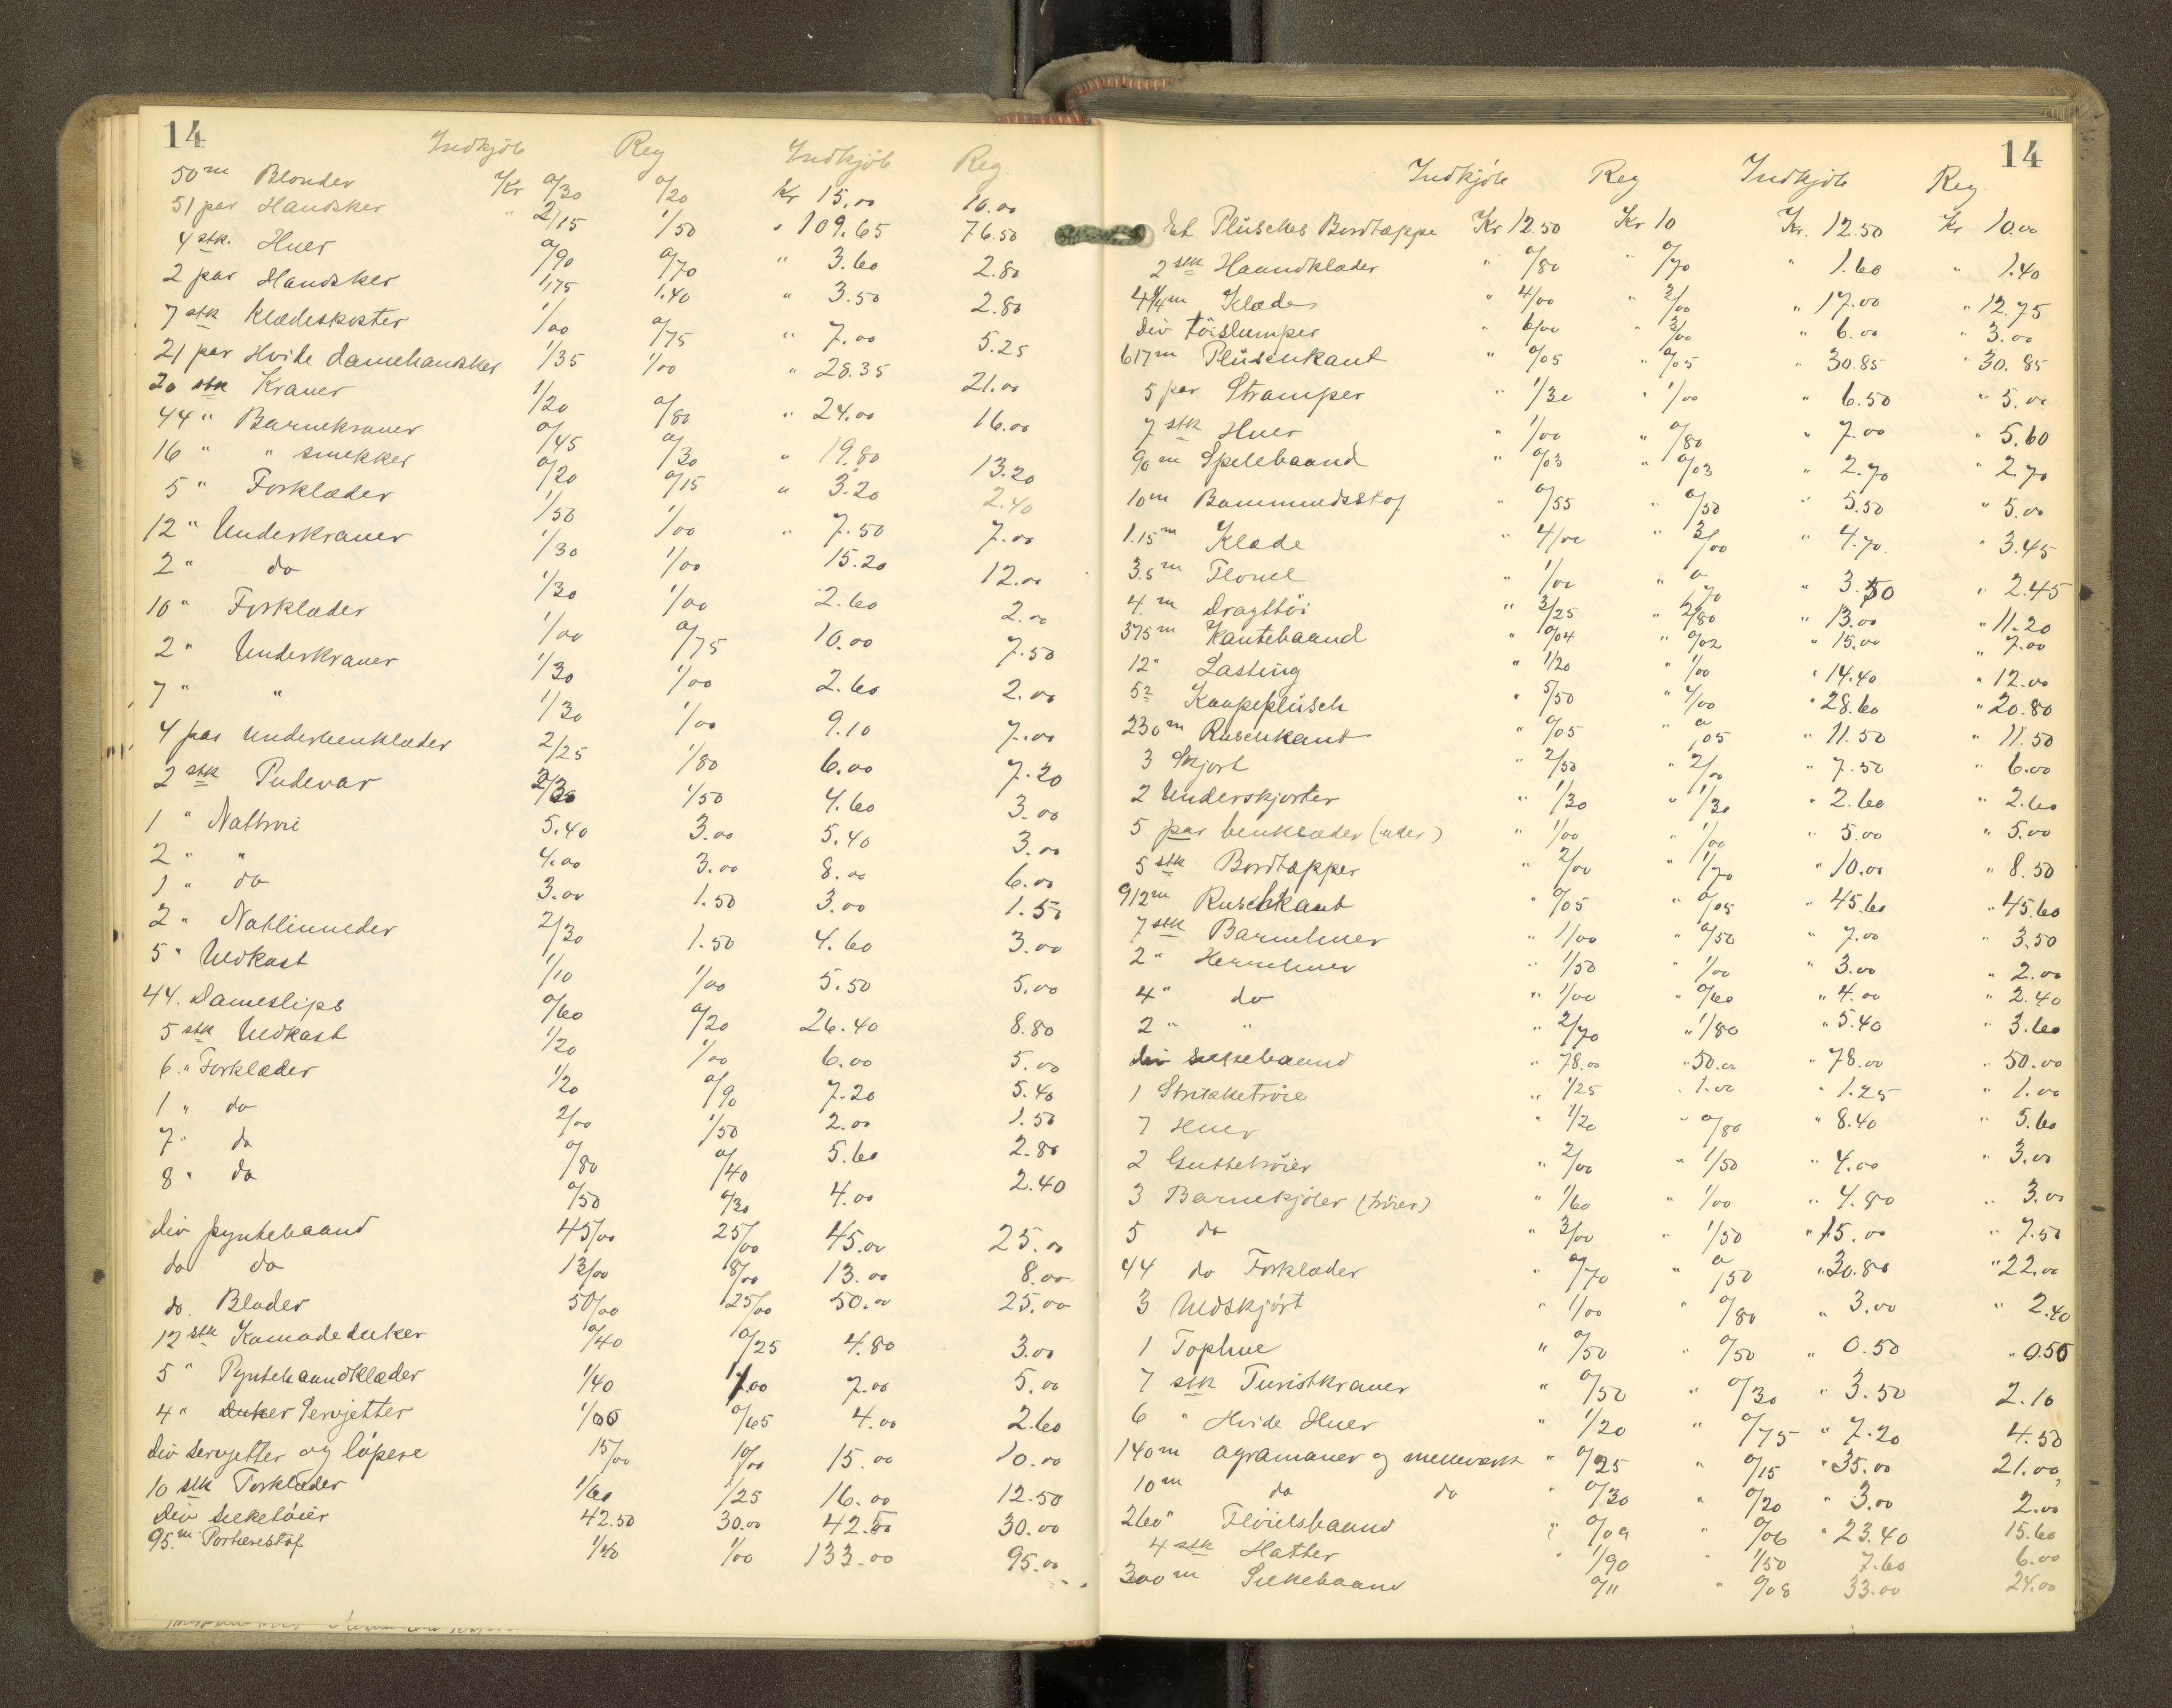 14
Indkjöb Reg Indkjöb Reg.
50m Blonder Kr 0/30 0/20 Kr 15.00 10.00
51 par Handsker " 2/15 1/50 " 109.65 76.50
4 stk. Huer 0/90 0/70 " 3.60 2.80
2 par Handsker 1/75 1.40 " 3.50 2.80
7 stk Klædeskoster 1/00 0/75 " 7.00 5.25
21 par Hvide damehandsker 1/35 1/00 " 28.35 21.00
20 stk Kraver 1/20 0/80 " 24.00 16.00
44 " Barnekraver 0/45 0/30 " 19.80 13.20
16 " " smekker 0/20 0/15 " 3.20 2.40
5 " Forklæder 1/50 1/00 " 7.50 7.00
12 " Underkraver 1/30 1/00 15.20 12.00
2 " do 1/30 1/00 2.60 2.00
10 " Forklæder 1/00 0/75 10.00 7.50
2 " Underkraver 1/30 1/00 2.60 2.00
7 " " 1/30 1/00 9.10 7.00
4 par underbenklæder 2/25 1/80 6.00 7.20
2 stk Pudevar 2/30 1/50 4.60 3.00
1 " Nattroie 5.40 3.00 5.40 3.00
2 " " 4.00 3.00 8.00 6.00
1 " do 3.00 1.50 3.00 1.50
2 " Natlinneder 2/30 1.50 4.60 3.00
5 " Udkast 1/10 1/00 5.50 5.00
44. Dameslips 0/60 0/20 26.40 8.80
5 stk Udkast 1/20 1/00 6.00 5.00
6 " Forklæder 1/20 0/90 7.20 5.40
1 " do 2/00 1/50 2.00 1.50
7 " do 0/80 0/40 5.60 2.80
8 " do 0/50 0/30 4.00 2.40
div pyntebaand 45/00 25/00 45.00 25.00
do do 13/00 8/00 13.00 8.00
do. Blader 50/00 25/00 50.00 25.00
12 stk Komodeduker 0/40 0/25 4.80 3.00
5 " Pyntehaandklæder 1/40 1.00 7.00 5.00
4 " Duker Servjetter 1/00 0/65 4.00 2.60
div servjetter og löpere 15/00 10/00 15.00 10.00
10 stk Forklæder 1/60 1/25 16.00 12.50
Div silketöier 42.50 30.00 42.50 30.00
95.m Portierestof 1/40 1/00 133.00 95.00
14
Indkjöb Reg Indkjöb Reg
Et Plüsches Bordtæppe Kr 12.50 Kr 10 Kr. 12.50 Kr 10.00
2 stk Haandklæder " 0/80 " 0/70 " 1.60 " 1.40
4 1/4 m Klæde " 4/00 " 3/00 " 17.00 " 12.75
div töislumper " 6/00 " 3/00 " 6.00 " 3.00
617m Plüschkant " 0/05 " 0/05 " 30.85 " 30.85
5 par Strømper " 1/30 " 1/00 " 6.50 " 5.00
7 stk Huer " 1/00 " 0/80 " 7.00 " 5.60
90m Spilebaand " 0/03 " 0/03 " 2.70 " 2.70
10m Bommuldsstof " 0/55 0/50 " 5.50 " 5.00
1.15m Klæde " 4/00 " 3/00 " 4.70 " 3.45
3.5m Flonel " 1/00 " 0/70 " 3.50 " 2.45
4.m Dragttöi " 3/25 " 2/80 " 13.00 " 11.20
375m Kantebaand " 0/04 " 0/02 " 15.00 " 7.00
12 " Lasting " 1/20 " 1/00 " 14.40 " 12.00
5 2 Kaapeplüsch " 5/50 " 4/00 " 28.60 " 20.80
230m Ruschkant " 0/05 " 0/05 " 11.50 " 11.50
3 Skjort " 2/50 " 2/00 " 7.50 " 6.00
2 Underskjorter " 1/30 " 1/30 " 2.60 " 2.60
5 par benklæder (uder) " 1/00 " 1/00 " 5.00 " 5.00
5 stk Bordtæpper " 2/00 " 1/70 " 10.00 " 8.50
912m Ruschkant " 0/05 " 0/05 " 45.60 " 45.60
7 stk Barnehuer " 1/00 " 0/50 " 7.00 " 3.50
2 " Herrehuer " 1/50 " 1/00 " 3.00 " 2.00
4 " do " 1/00 " 0/60 " 4.00 " 2.40
2 " " " 2/70 " 1/80 " 5.40 " 3.60
div silkebaand " 78.00 " 50.00 " 78.00 " 50.00
1 Strikketröie " 1/25 " 1.00 " 1.25 " 1.00
7 Huer " 1/20 " 0/80 " 8.40 " 5.60
2 Guttetröier " 2/00 " 1/50 " 4.00 " 3.00
3 Barnekjoler (tröier) " 1/60 " 1/00 " 4.80 " 3.00
5 do " 3/00 " 1/50 " 15.00 " 7.50
44 do Forklæder " 0/70 " 0/50 " 30.80 " 22.00
3 Udskjört " 1/00 " 0/80 " 3.00 " 2.40
1 Tophue " 0/50 " 0/50 " 0.50 " 0.50
7 stk Turistkraver " 0/50 " 0/30 " 3.50 2.10
6 " Hvide Huer " 1/20 " 0/75 " 7.20 4.50
140m agramaner og mellemværk " 0/25 " 0/15 " 35.00 21.00
10m do do " 0/30 " 0/20 " 3.00 2.00
260 " Flöielsbaand " 0/09 " 0/06 " 23.40 15.60
4 stk Hatter " 1/90 " 1/50 7.60 6.00
300m Silkebaand 0/11 " 0/08 33.00 24.00